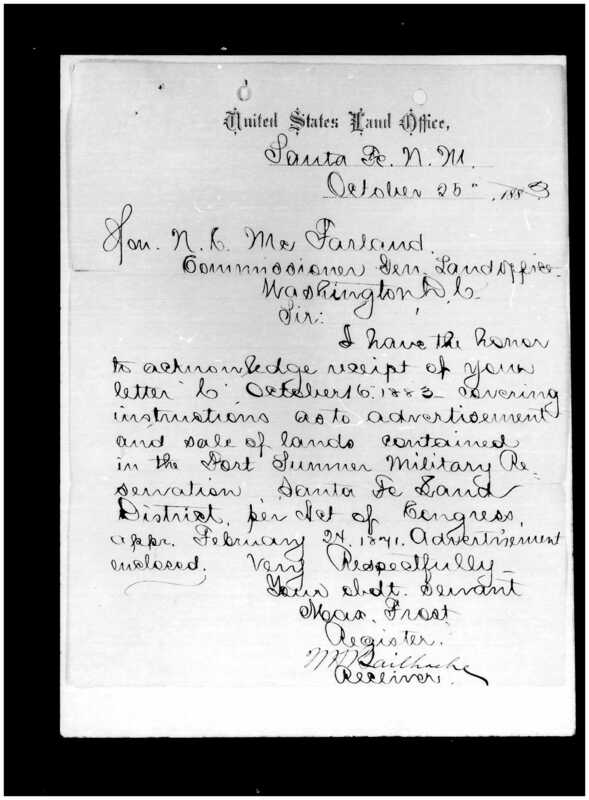 United States Land Office,
Santa Fe. N. M.
October 25" 1883
Hon. N. C. Mc Farland.
Commissioner Gen. Land office
Washington D. C.
Sir:
I have the honor
to acknowledge receipt of your
letter "C" October 16, 1883 covering
instructions as to advertisement
and sale of lands contained
in the Fort Sumner Military Re-
servation, Santa Fe Land
District, per Act of Congress,
appr. February 24, 1871. Advertisement
enclosed. Very Respectfully
Your obdt. servant
Max. Frost
Register.
Receiver.